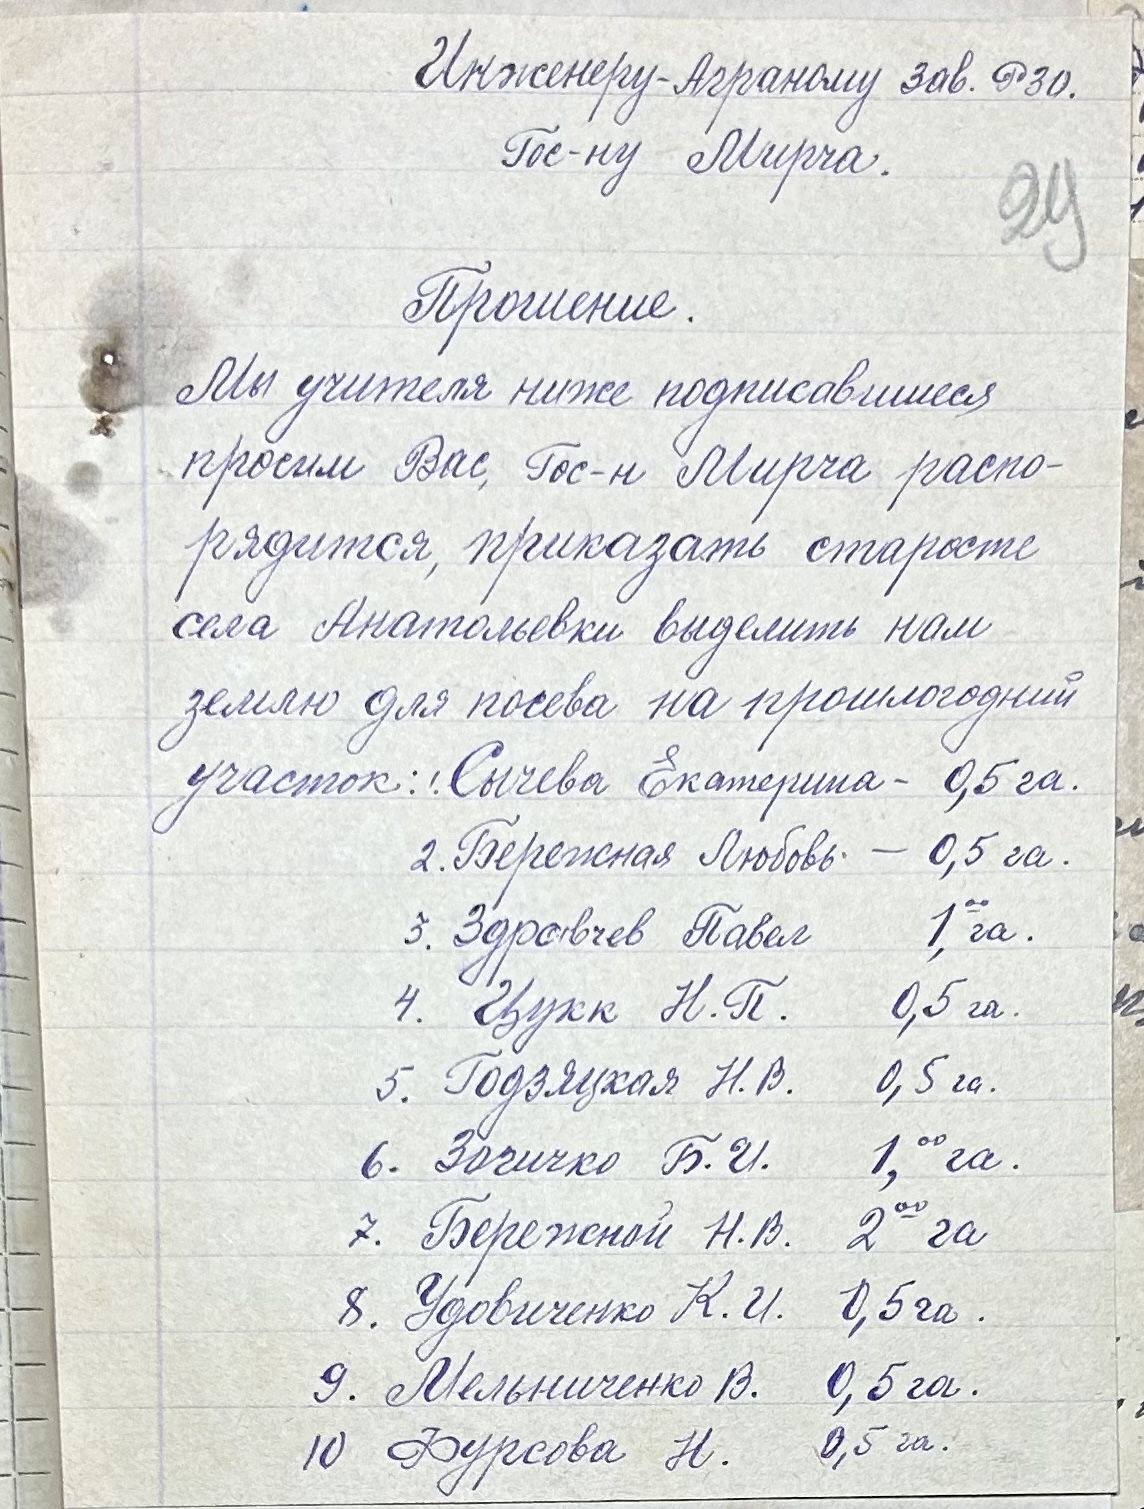 Инженеру-Аграному Зав. РЗО.
Гос-ну Мирча.
29
Прошение.
Мы учителя ниже подписавшиеся
просим Вас, Гос-н Мирча распо-
рядится, приказать старосте
села Анатольевки выделить нам
землю для посева на прошлогодний
участок: 1. Сычева Екатерина - 0,5 га.
2. Бережная Любовь. — 0,5 га.
3. Здравчев Павел 1,00 га.
4. Цукк Н.П. 0,5 га.
5. Годзяцкая Н.В. 0,5 га.
6. Зачичко Б.И. 1,00 га.
7. Бережной Н.В. 2 00 га
8. Удовиченко К.И. 0,5 га.
9. Мельниченко В. 0,5 га.
10 Фурсова Н. 0,5 га.